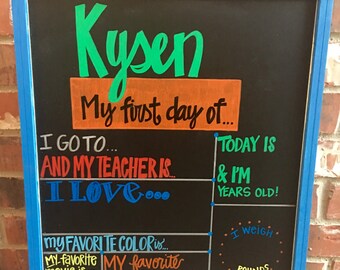 Kysen
My first day of...
I GO TO...
AND MY TEACHER IS...
I LOVE...
TODAY IS
& I'M
YEARS OLD!
MY FAVORITE COLOR is...
I WEIGH
POUNDS
MY FAVORITE
MOVIE IS
MY FAVORITE